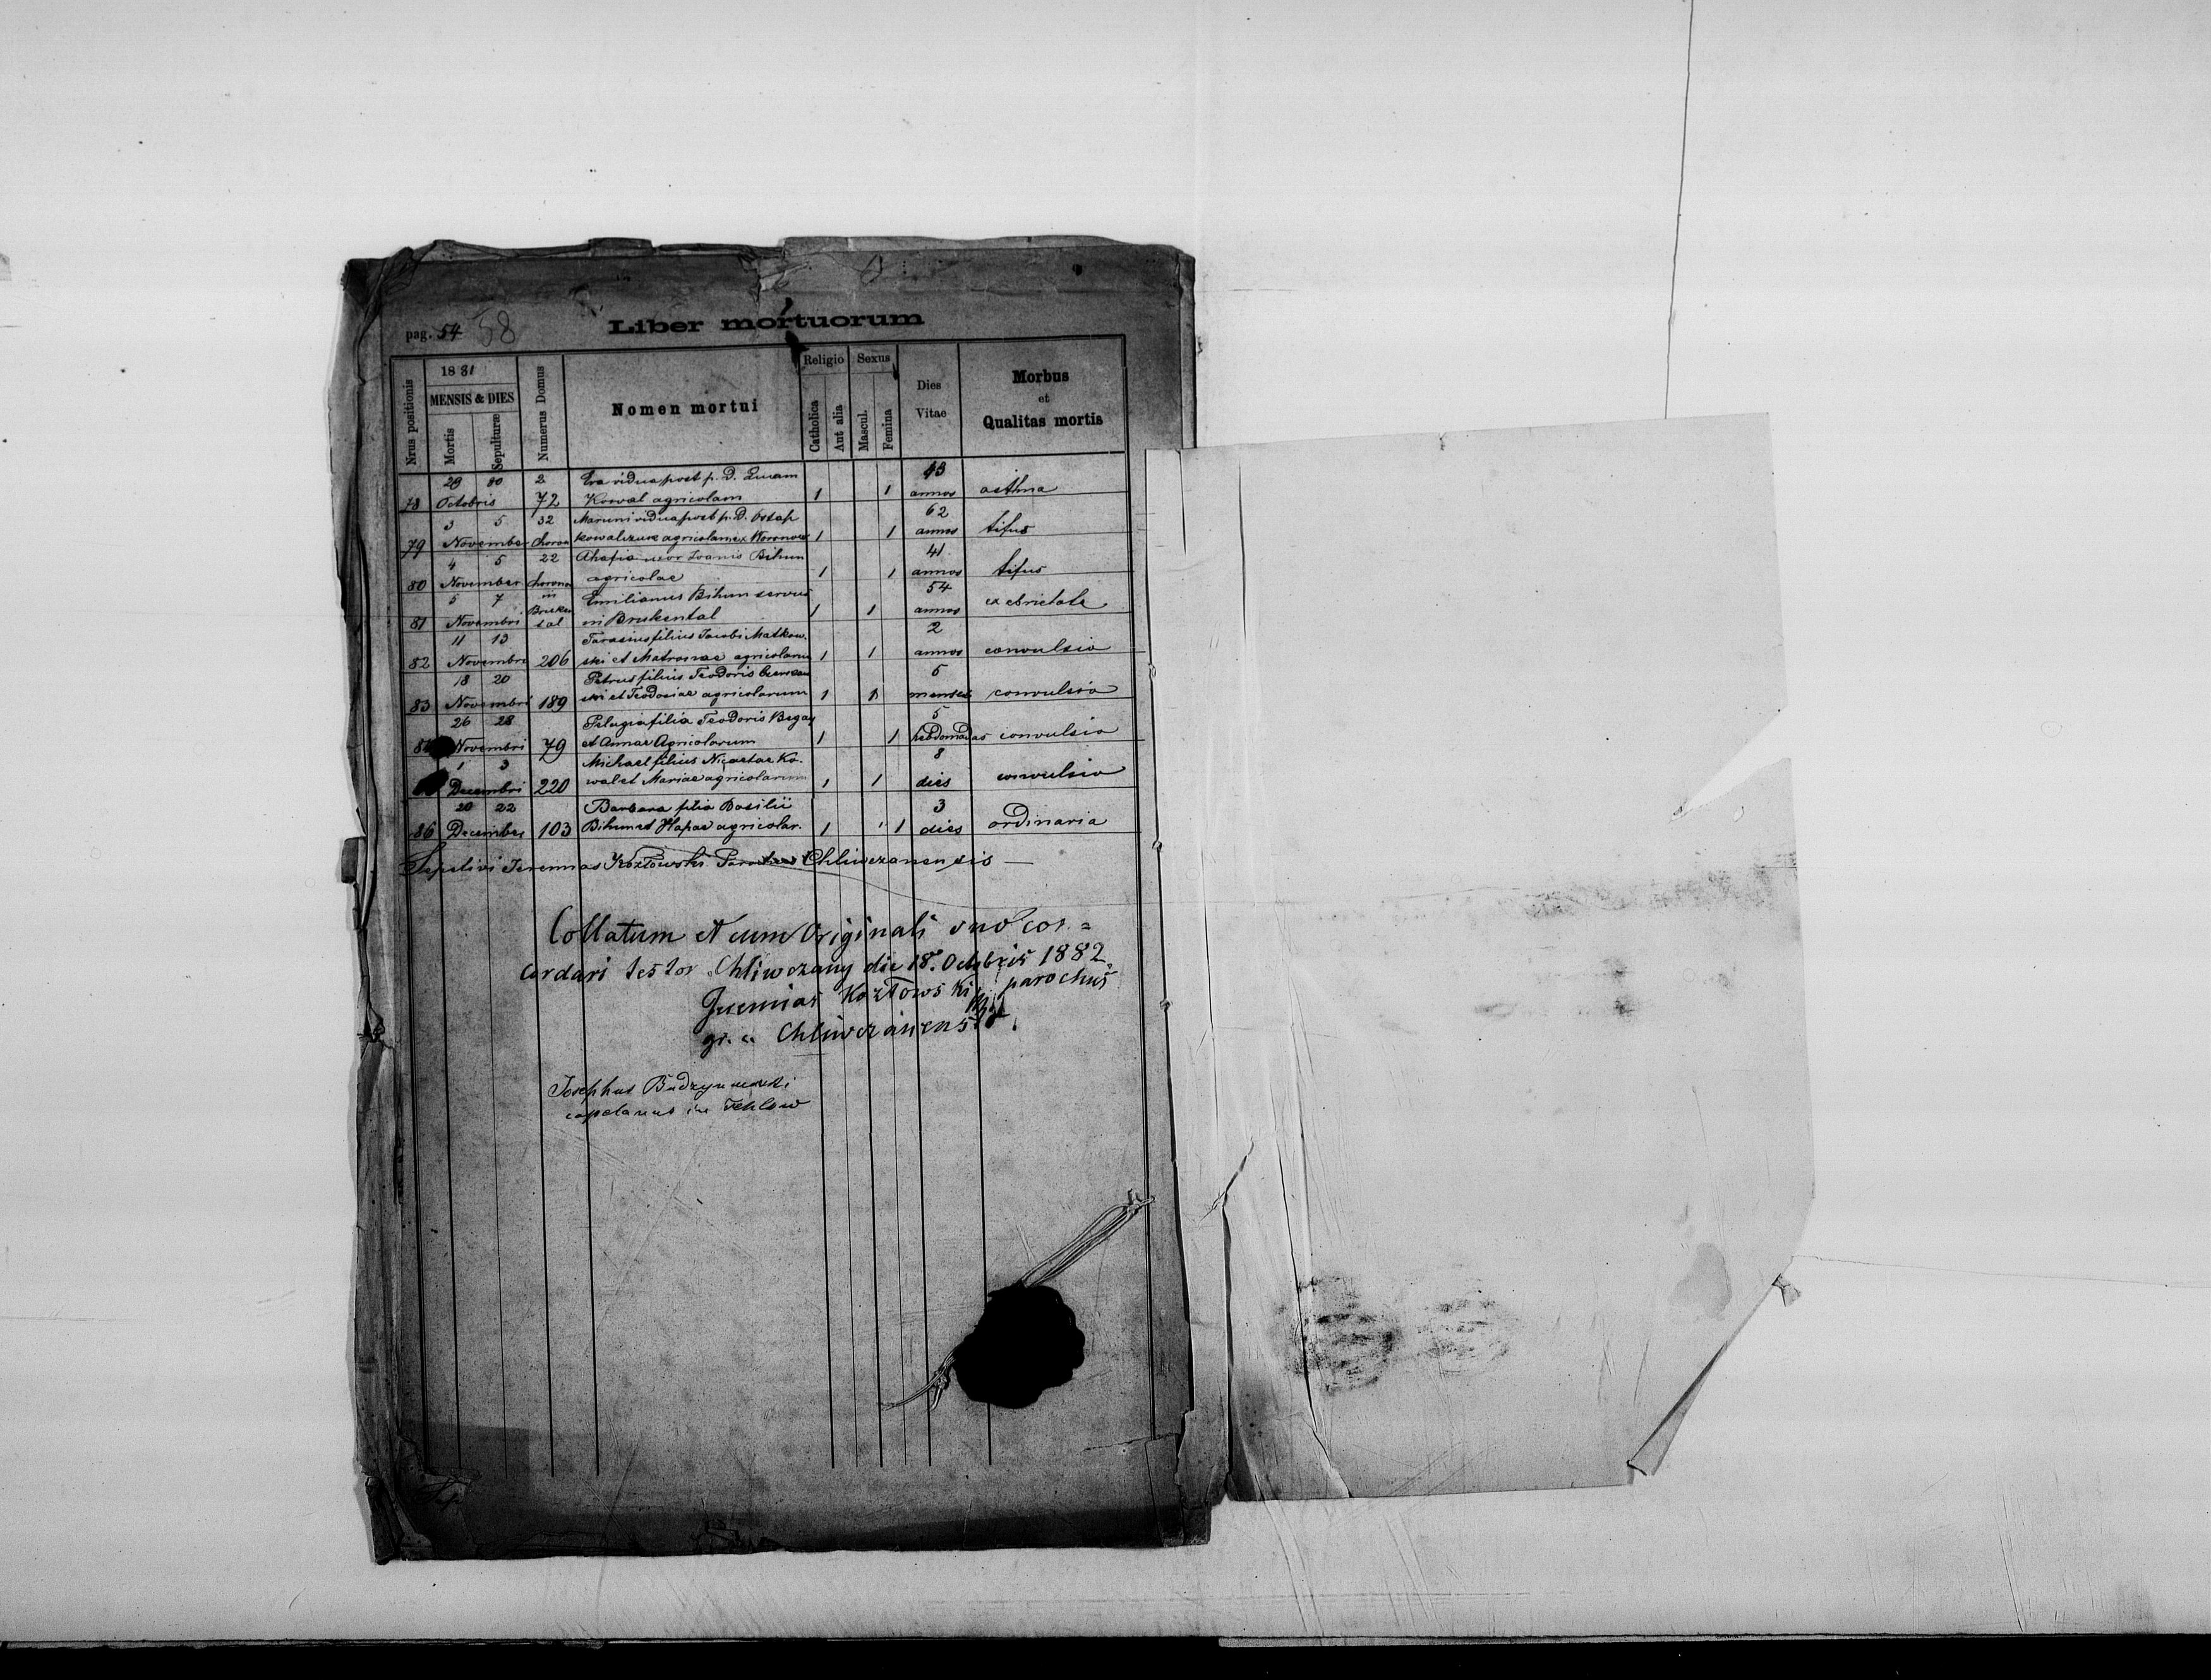 pag. 54 58
Liber mortuorum
Nrus positionis
1881
MENSIS & DIES
Mortis
Sepulturæ
Numerus Domus
Nomen mortui
Religio
Catholica
Aut alia
Sexus
Mascul.
Femina
Dies Vitae
Morbus et Qualitas mortis
29 30 2 Eva vidua post p. D. 43
78 Octobris 72 Kowal agricolam 1 1 annos asthma
3 5 32 Maruni vidua post p. D. Ostap 62
79 November Choron Kowalczuk agricolam ex Koronow 1 1 annos tifus
4 5 22 Ahafia uxor Ioanis Bihun 41
80 November Choron agricolae 1 1 annos tifus
5 7 in Emilianus Bihun servus 54
81 Novembri Bruken tal in Brukental 1 1 annos ex ebrietate
11 13 Tarasius filius Jacobi Matkow- 2
82 Novembri 206 ski et Matronae agricolarum 1 1 annos convulsio
18 20 Petrus filius Teodoris 5
83 Novembri 189 ski et Teodosiae agricolarum 1 1 menses convulsio
26 28 Pelagia filia Teodoris Begay 5
Novembri 79 et Annae Agricolarum 1 1 hebdomadas convulsio
1 3 Michael filius Nicetae Ko- 8
Decembri 220 wal et Mariae agricolarum 1 1 dies convulsio
20 22 Barbara filia Basilii 3
86 Decembri 103 Bihun et Hapae agricolar. 1 1 dies ordinaria
Sepelivi Jeremias Kozłowski Parochus Chliwczanensis —
Collatum et cum Originali suo con=
cordari testor Chliwczany die 18. Octobris 1882.
Jeremias Kozłowski parochus
gr. c. Chliwczanensis.
Josephus Budzynowski
capelanus in Tehlow